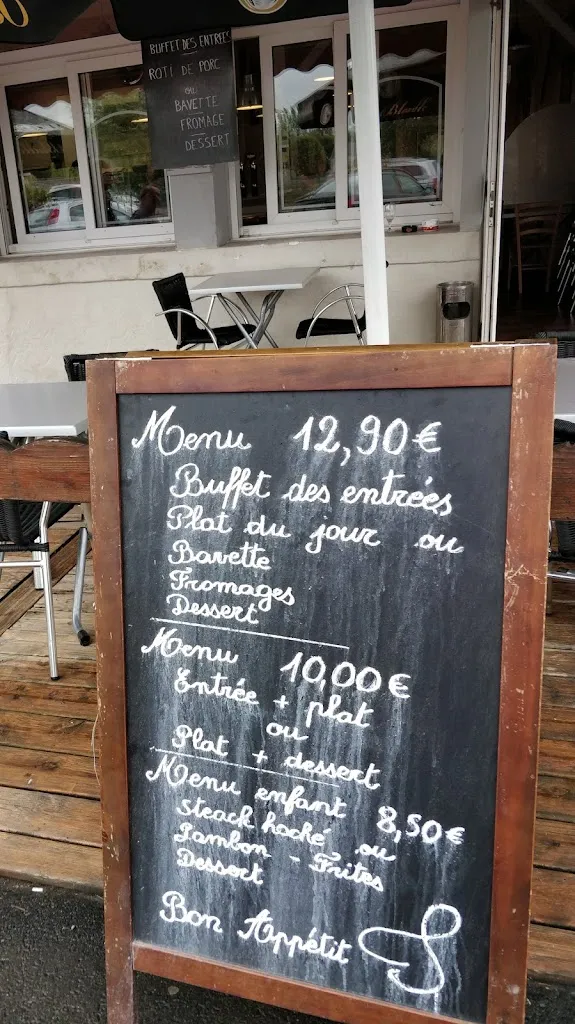 BUFFET DES ENTREES
ROTI DE PORC
OU
BAVETTE
FROMAGE
DESSERT
Menu 12,90€
Buffet des entrées
Plat du jour ou
Bavette
Fromages
Dessert
Menu 10,00€
Entrée + plat
ou
Plat + dessert
Menu enfant 8,50€
steack haché ou
Jambon - Frites
Dessert
Bon Appétit